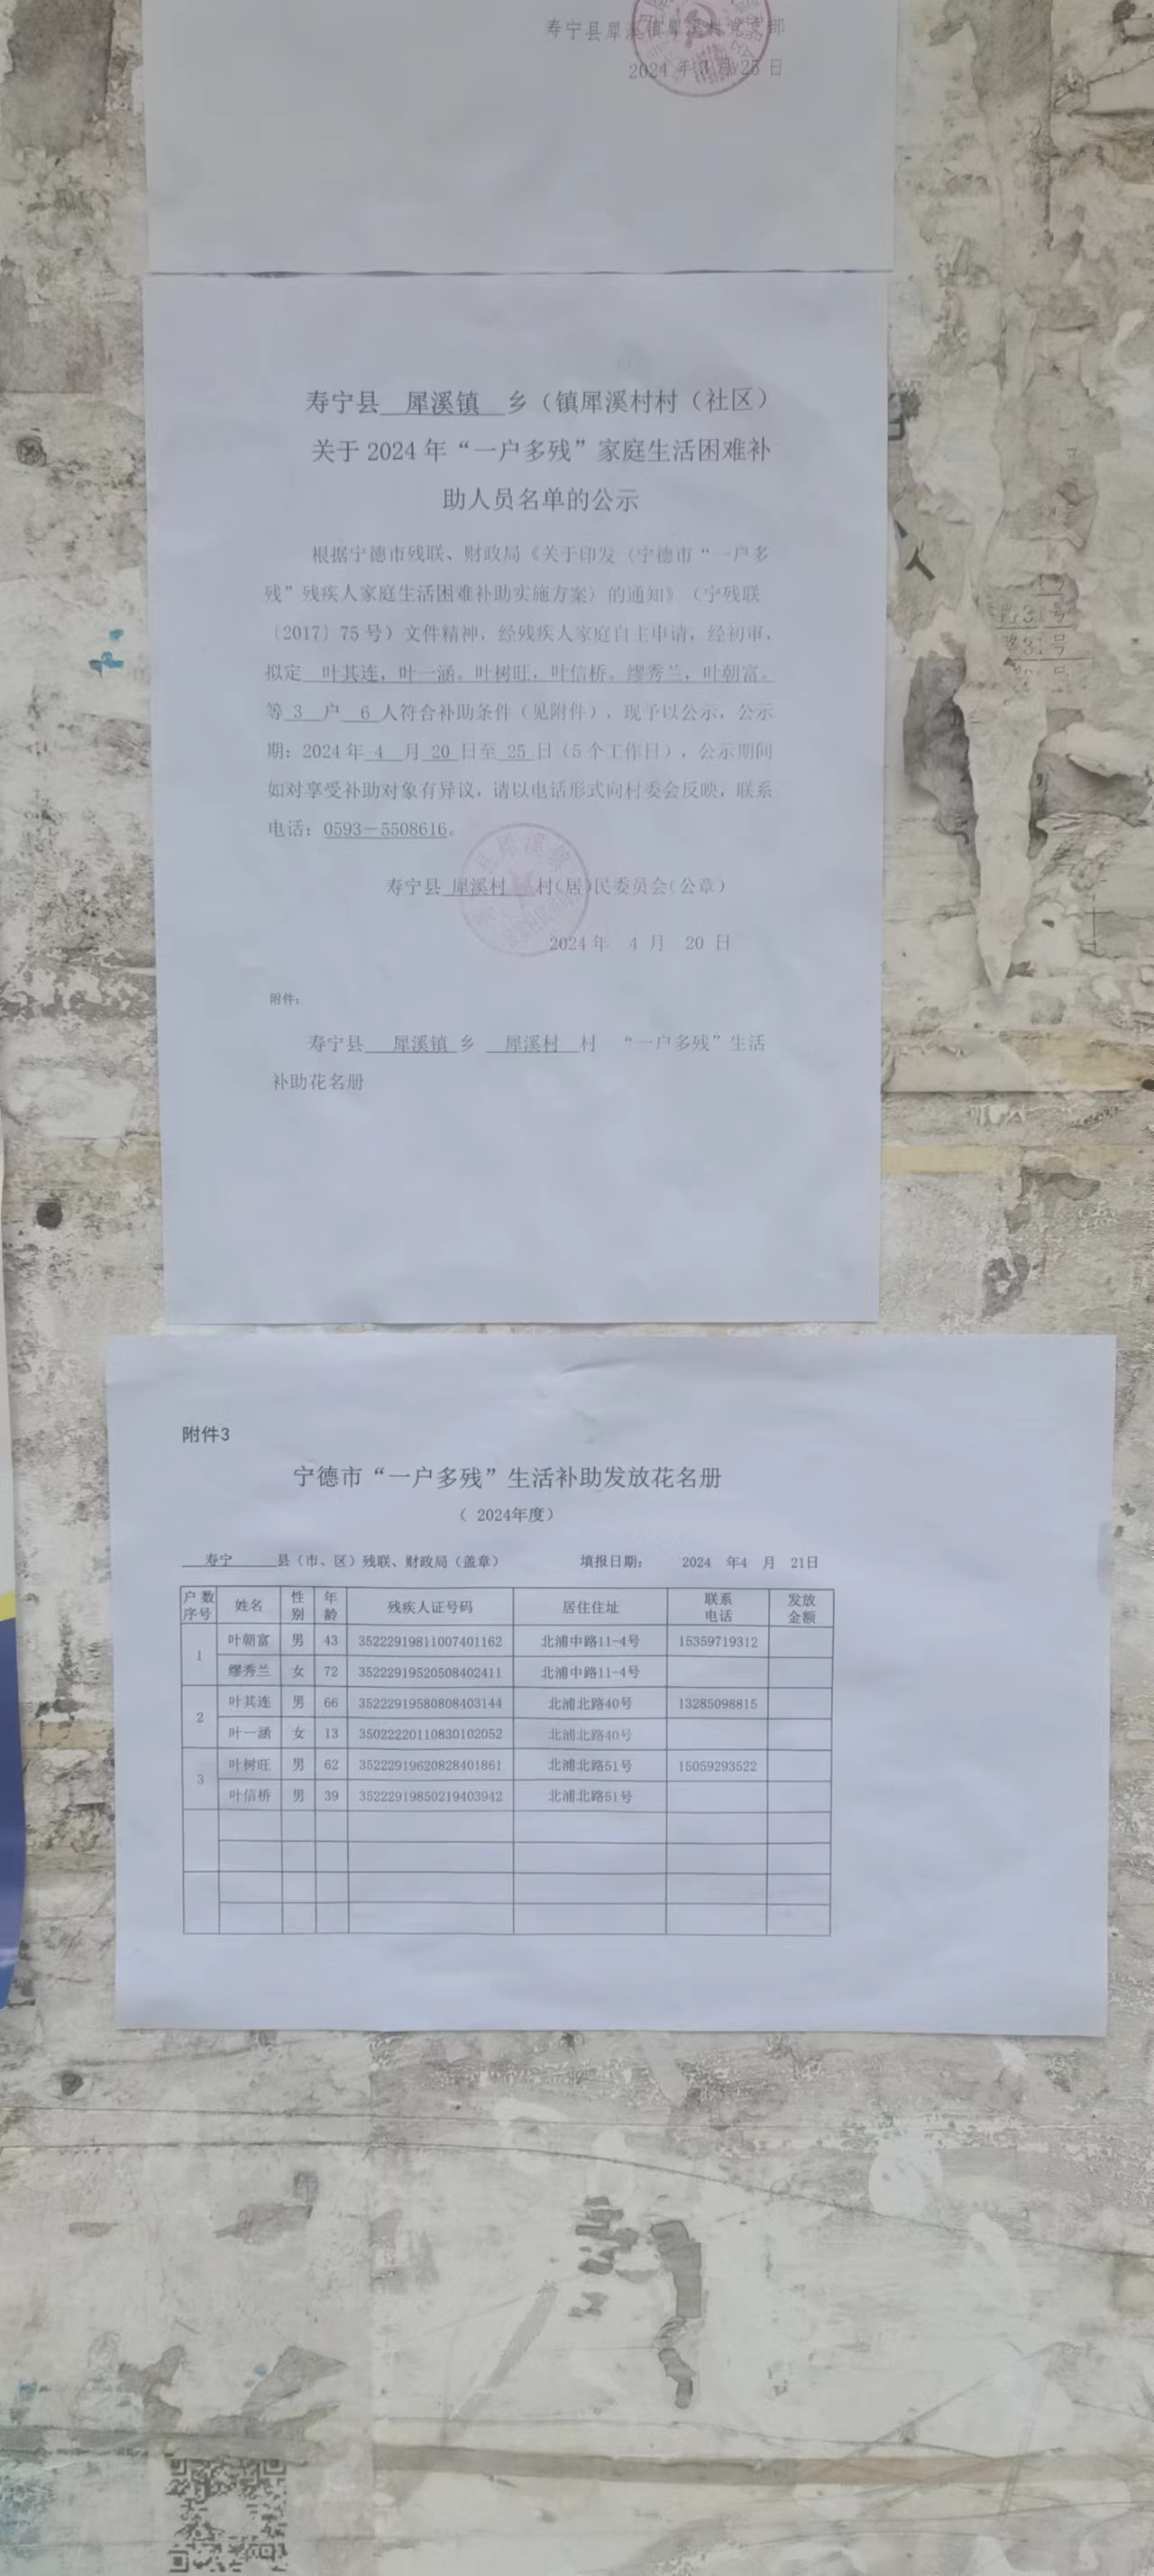 寿宁县犀溪镇犀溪村党支部
2024 年3 月 25 日
寿宁县 犀溪镇 乡（镇犀溪村村（社区）
关于 2024 年“一户多残”家庭生活困难补
助人员名单的公示
根据宁德市残联、财政局《关于印发〈宁德市“一户多
残”残疾人家庭生活困难补助实施方案〉的通知》（宁残联
〔2017〕75 号）文件精神，经残疾人家庭自主申请，经初审，
拟定 叶其连，叶一涵。叶树旺，叶信桥。缪秀兰，叶朝富。
等 3 户 6 人符合补助条件（见附件），现予以公示，公示
期：2024 年 4 月 20 日至 25 日（5 个工作日），公示期间
如对享受补助对象有异议，请以电话形式向村委会反映，联系
电话：0593－5508616。
寿宁县 犀溪村 村(居)民委员会(公章）
2024 年 4 月 20 日
附件：
寿宁县 犀溪镇 乡 犀溪村 村 “一户多残”生活
补助花名册
附件3
宁德市“一户多残”生活补助发放花名册
（ 2024年度）
寿宁 县（市、区）残联、财政局（盖章） 填报日期： 2024 年4 月 21日
户数序号 姓名 性别 年龄 残疾人证号码 居住住址 联系电话 发放金额
1 叶朝富 男 43 35222919811007401162 北浦中路11-4号 15359719312
缪秀兰 女 72 35222919520508402411 北浦中路11-4号
2 叶其连 男 66 35222919580808403144 北浦北路40号 13285098815
叶一涵 女 13 35022220110830102052 北浦北路40号
3 叶树旺 男 62 35222919620828401861 北浦北路51号 15059293522
叶信桥 男 39 35222919850219403942 北浦北路51号